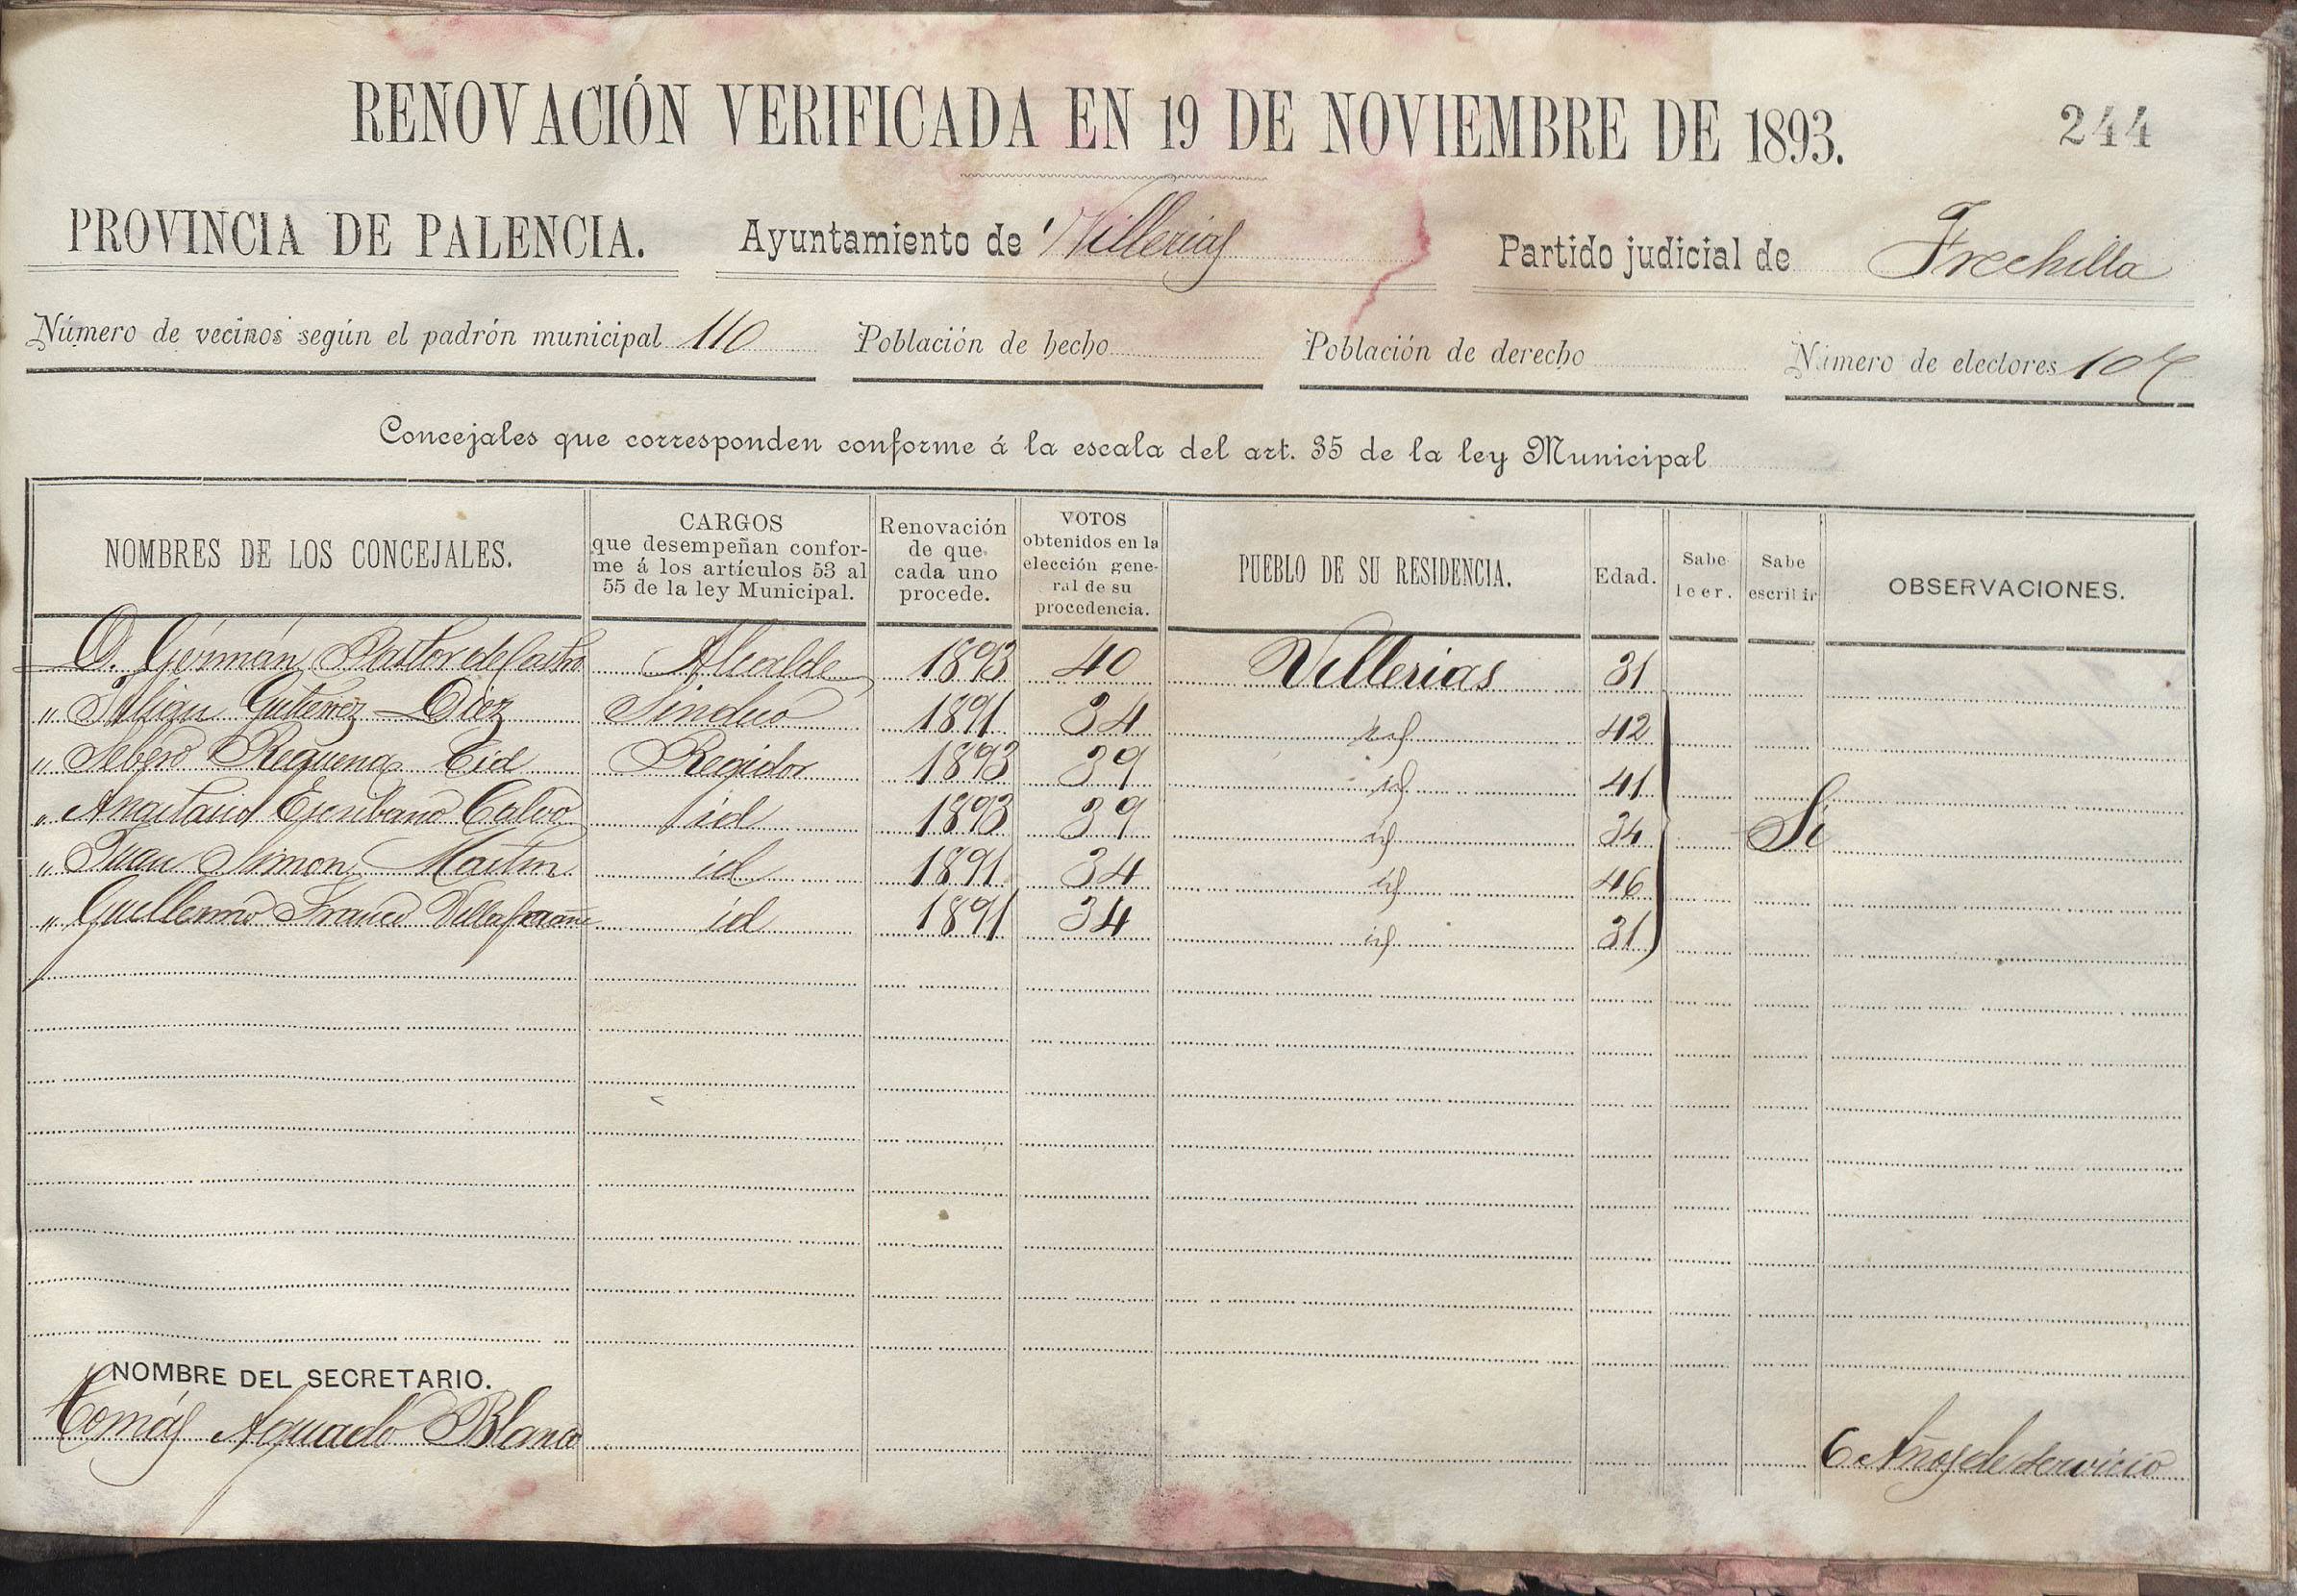 RENOVACIÓN VERIFICADA EN 19 DE NOVIEMBRE DE 1893. 244
PROVINCIA DE PALENCIA. Ayuntamiento de Villerias Partido judicial de Frechilla
Número de vecinos según el padrón municipal 110 Población de hecho Población de derecho Número de electores 107
Concejales que corresponden conforme á la escala del art. 35 de la ley Municipal
NOMBRES DE LOS CONCEJALES. CARGOS que desempeñan conforme á los artículos 53 al 55 de la ley Municipal. Renovación de que cada uno procede. VOTOS obtenidos en la elección general de su procedencia. PUEBLO DE SU RESIDENCIA. Edad. Sabe leer. Sabe escribir OBSERVACIONES.
D. Germán Pastor de Castro Alcalde 1893 40 Villerias 31
" Gutierrez Diez Sindico 1891 34 id 42
" Sebero Requena Cid Regidor 1893 39 id 41
" Anastasio Escribano Calvo id 1893 39 id 34 Si
" Juan Simon Martin id 1891 34 id 46
" Guillermo Franco Villafrañe id 1891 34 id 31
NOMBRE DEL SECRETARIO.
Tomás Aguado Blanco 6 Años de servicio